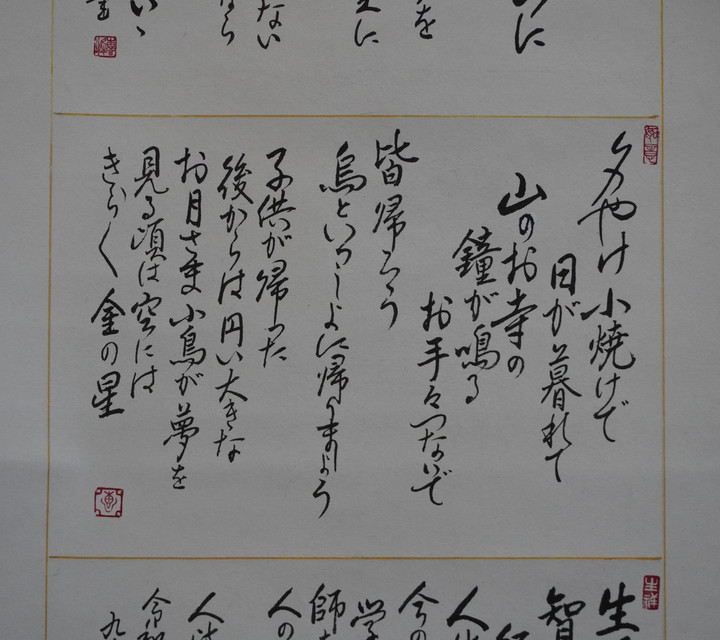 に
を
に
ない
ら
夕やけ小焼けで
日が暮れて
山のお寺の
鐘が鳴る
お手々つないで
皆帰ろう
烏といっしょに帰りましょう
子供が帰った
後からは円い大きな
お月さま小鳥が夢を
見る頃は空には
きら〱金の星
生
智
人
今の
学
師
人の
人は
令和
九